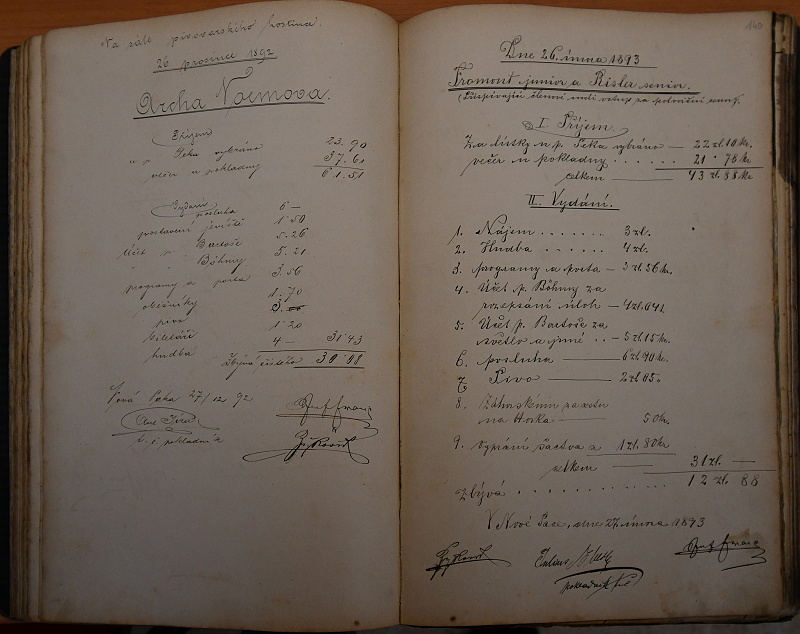 Na sále pivovarského hostince.
26 prosince 1892
Archa Noemova.
Příjem
u p. Peka vybráno 23.90
večer u pokladny 37.61
61.51
Vydání
posluha 6 —
postavení jeviště 1.50
Účet p. Bartoše 5.26
" " Böhmy 5.21
programy a pošta 3.56
obecníky 1.70
pivo
1.20
hudba 4 — 31.43
Zbývá čistého 30.08
Nová Paka 27/12 92
t. č. pokladník
140
Dne 26. února 1893
Fromont junior a Risler senior.
I. Příjem
Za lístky u p. Peka vybráno — 22 zl. 10 kr.
večer u pokladny . . . . . . 21 . 78 kr.
celkem — 43 zl. 88 kr.
II. Vydání.
1. Nájem . . . . . . . 3 zl.
2. Hudba . . . . . . . 4 zl.
3. programy a pošta — 3 zl. 56 kr.
4. Účet p. Böhmy za
rozepsání úloh — 4 zl. 04 k.
5. Účet p. Bartoše za
světlo a jiné . . — 5 zl. 15 kr.
6. posluha — 6 zl. 90 kr.
7. Pivo — 2 zl. 05.
8.
na Horka — 50 kr.
9. Vyprání šactva a 1 zl. 80 kr.
celkem — 31 zl. —
Zbývá . . . . . . . . . . . . 12 zl. 88
V Nové Pace, dne 27. února 1893
pokladník